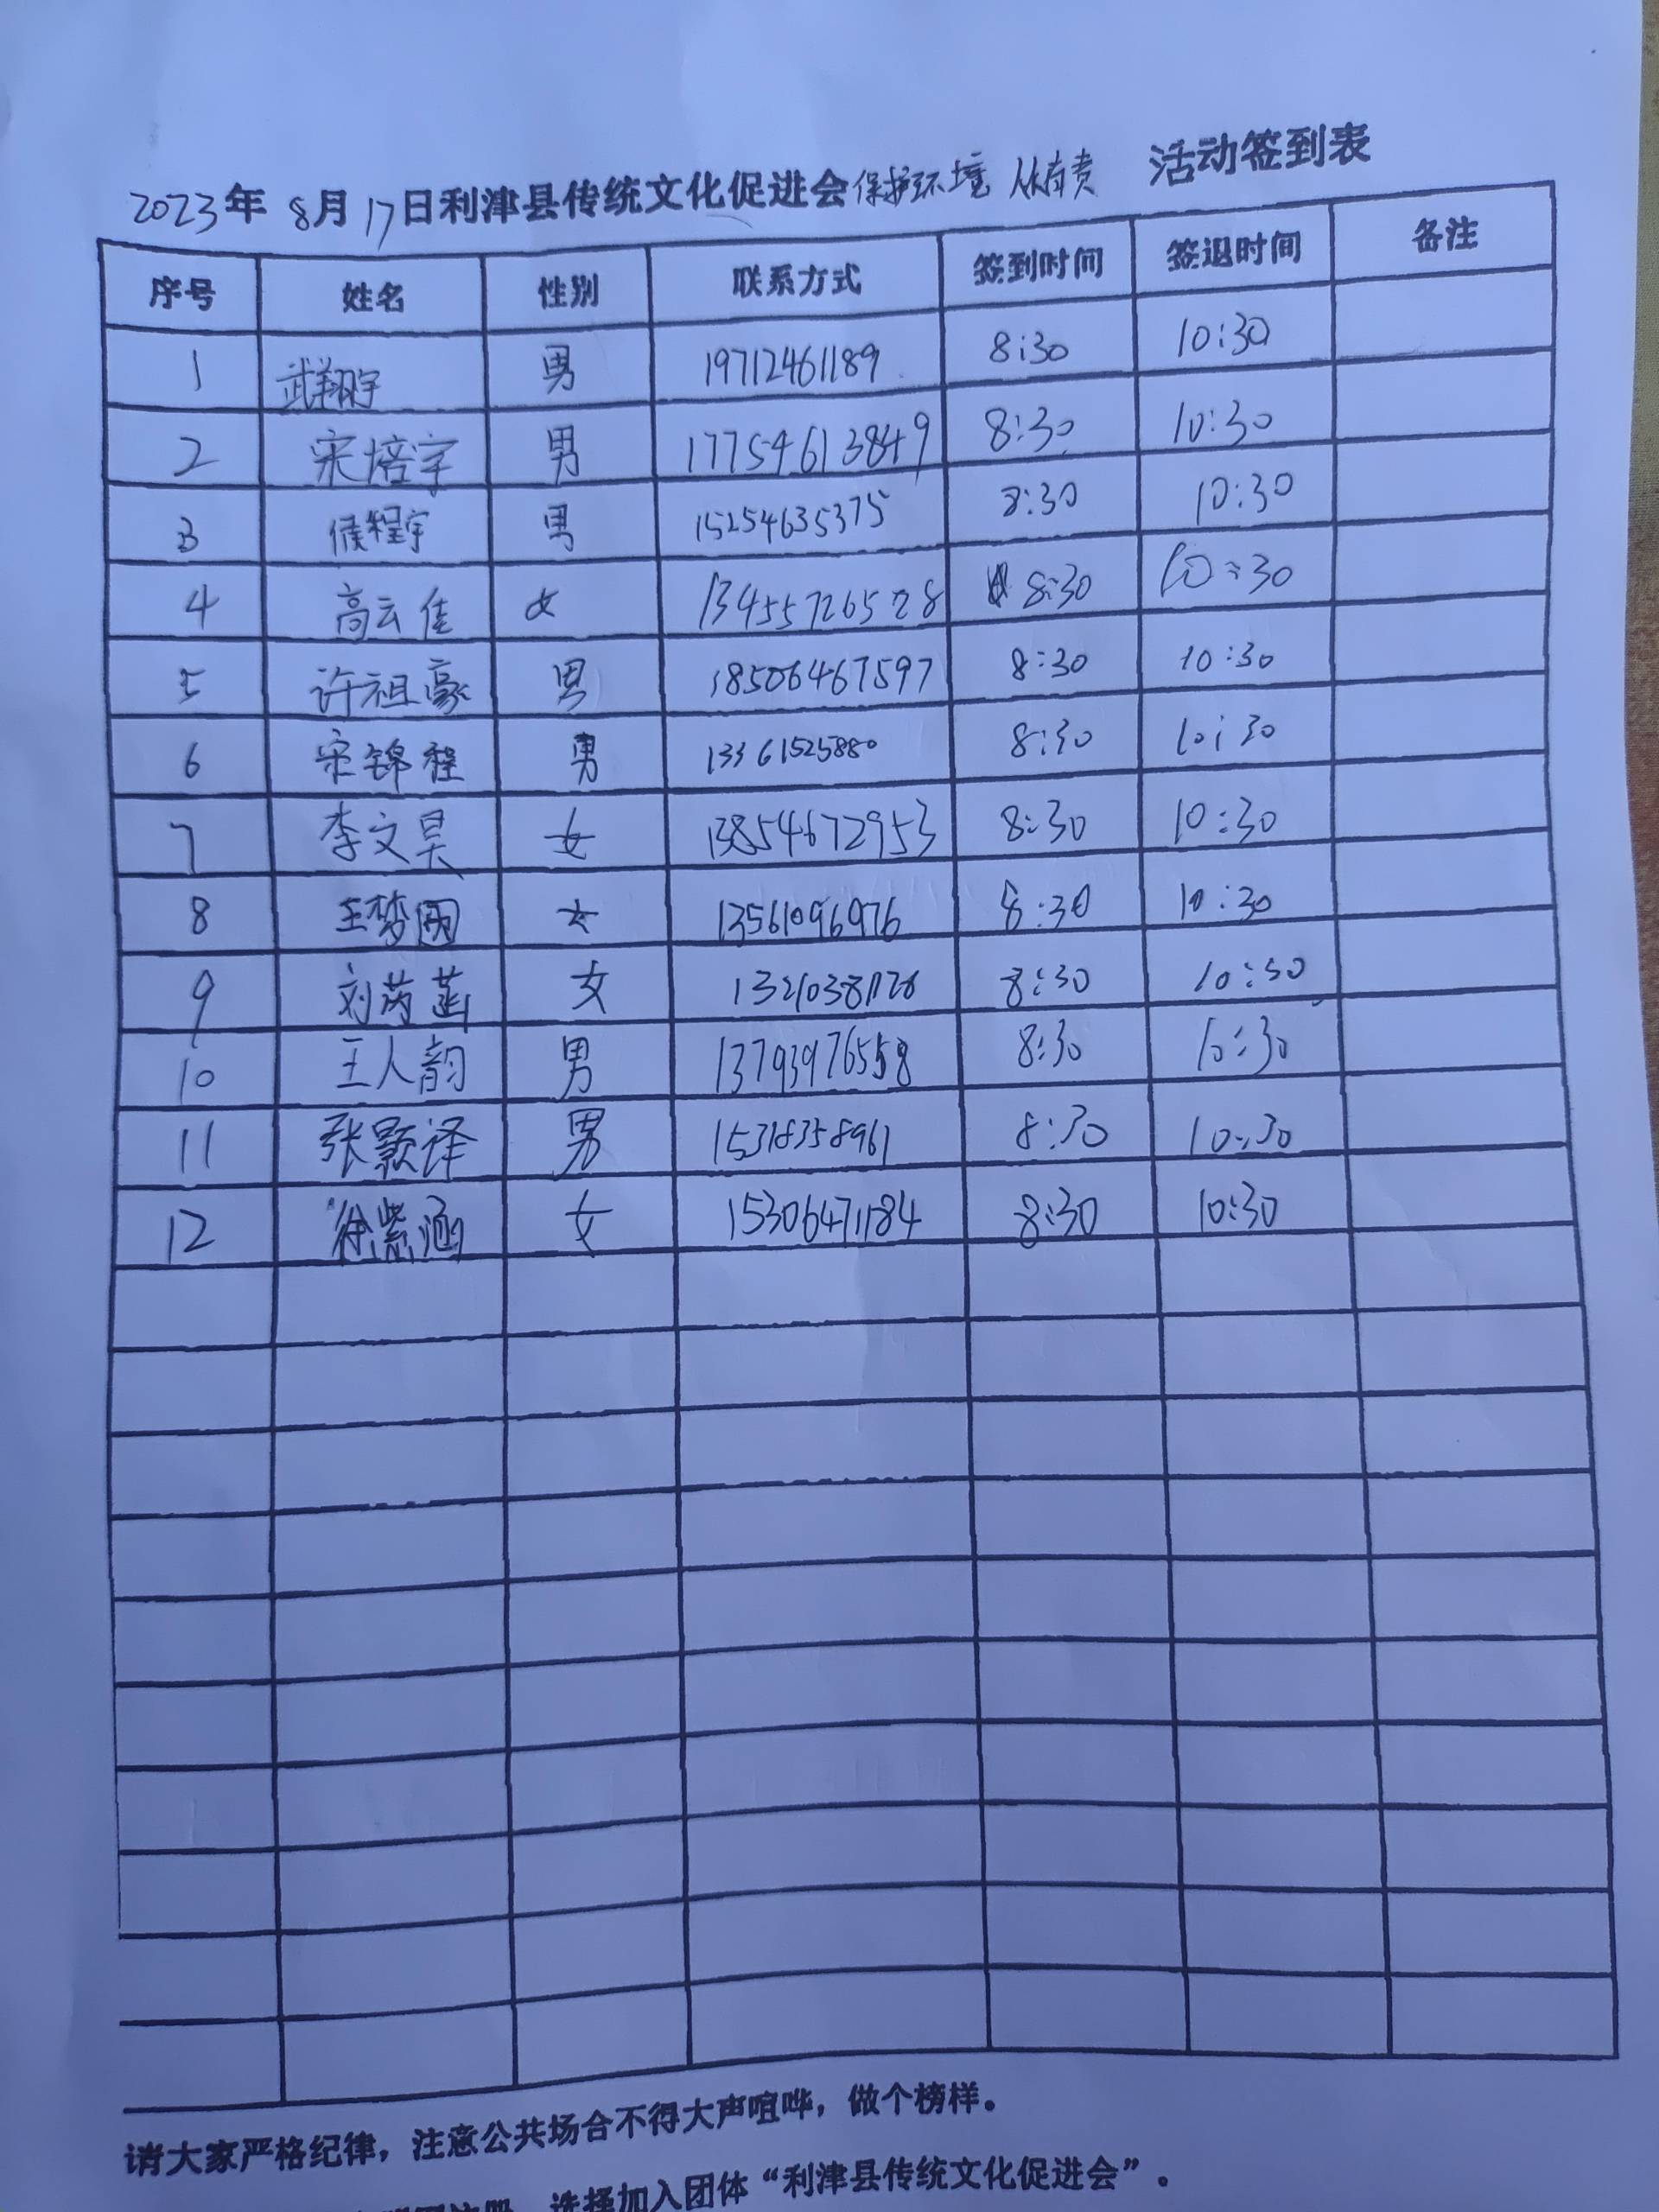 2023年 8月17日利津县传统文化促进会保护环境 人人有责 活动签到表
序号 姓名 性别 联系方式 签到时间 签退时间 备注
1 武翔宇 男 19712461189 8:30 10:30
2 宋培宇 男 17754613849 8:30 10:30
3 侯程宇 男 15254635375 8:30 10:30
4 高云佳 女 8:30 10:30
5 许祖豪 男 18506467597 8:30 10:30
6 宋锦程 男 13361525880 8:30 10:30
7 李文昊 女 13854672953 8:30 10:30
8 王梦圆 女 13561096976 8:30 10:30
9 刘芮菡 女 8:30 10:30
10 王人韵 男 13793976558 8:30 10:30
11 张颢译 男 15318358961 8:30 10:30
12 徐紫涵 女 15306471184 8:30 10:30
请大家严格纪律，注意公共场合不得大声喧哗，做个榜样。
选择加入团体“利津县传统文化促进会”。